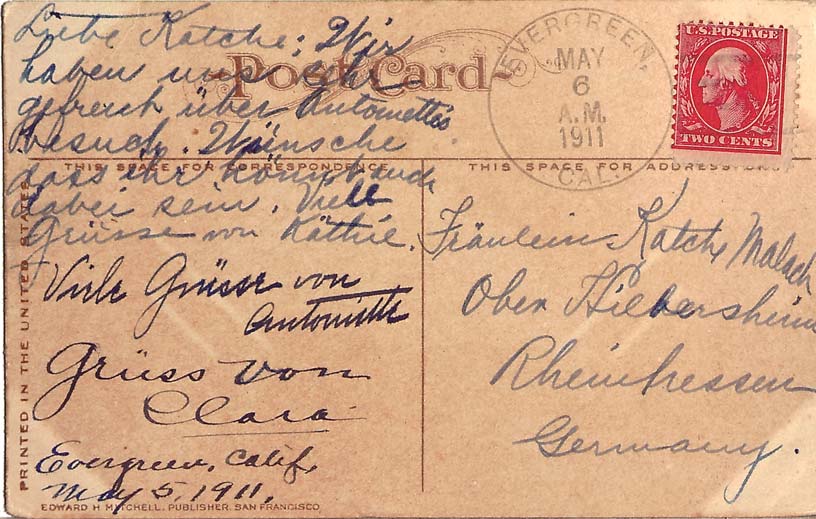 Liebe Katche: Wir
haben uns sehr
gefreut über Antoinette's
Besuch. Wünsche
dass ihr könnt auch
dabei sein. Viele
Grüsse von Käthie.
Viele Grüsse von
Antoinette
Grüss von
Clara
Evergreen, Calif,
May 5, 1911,
Post Card
THIS SPACE FOR CORRESPONDENCE
THIS SPACE FOR ADDRESS ONLY
PRINTED IN THE UNITED STATES
EDWARD H MITCHELL, PUBLISHER, SAN FRANCISCO
EVERGREEN,
MAY
6
A.M.
1911
CAL.
U.S. POSTAGE
TWO CENTS
Fräulein Katche Malach
Ober Hilbersheim
Rheinhessen
Germany.